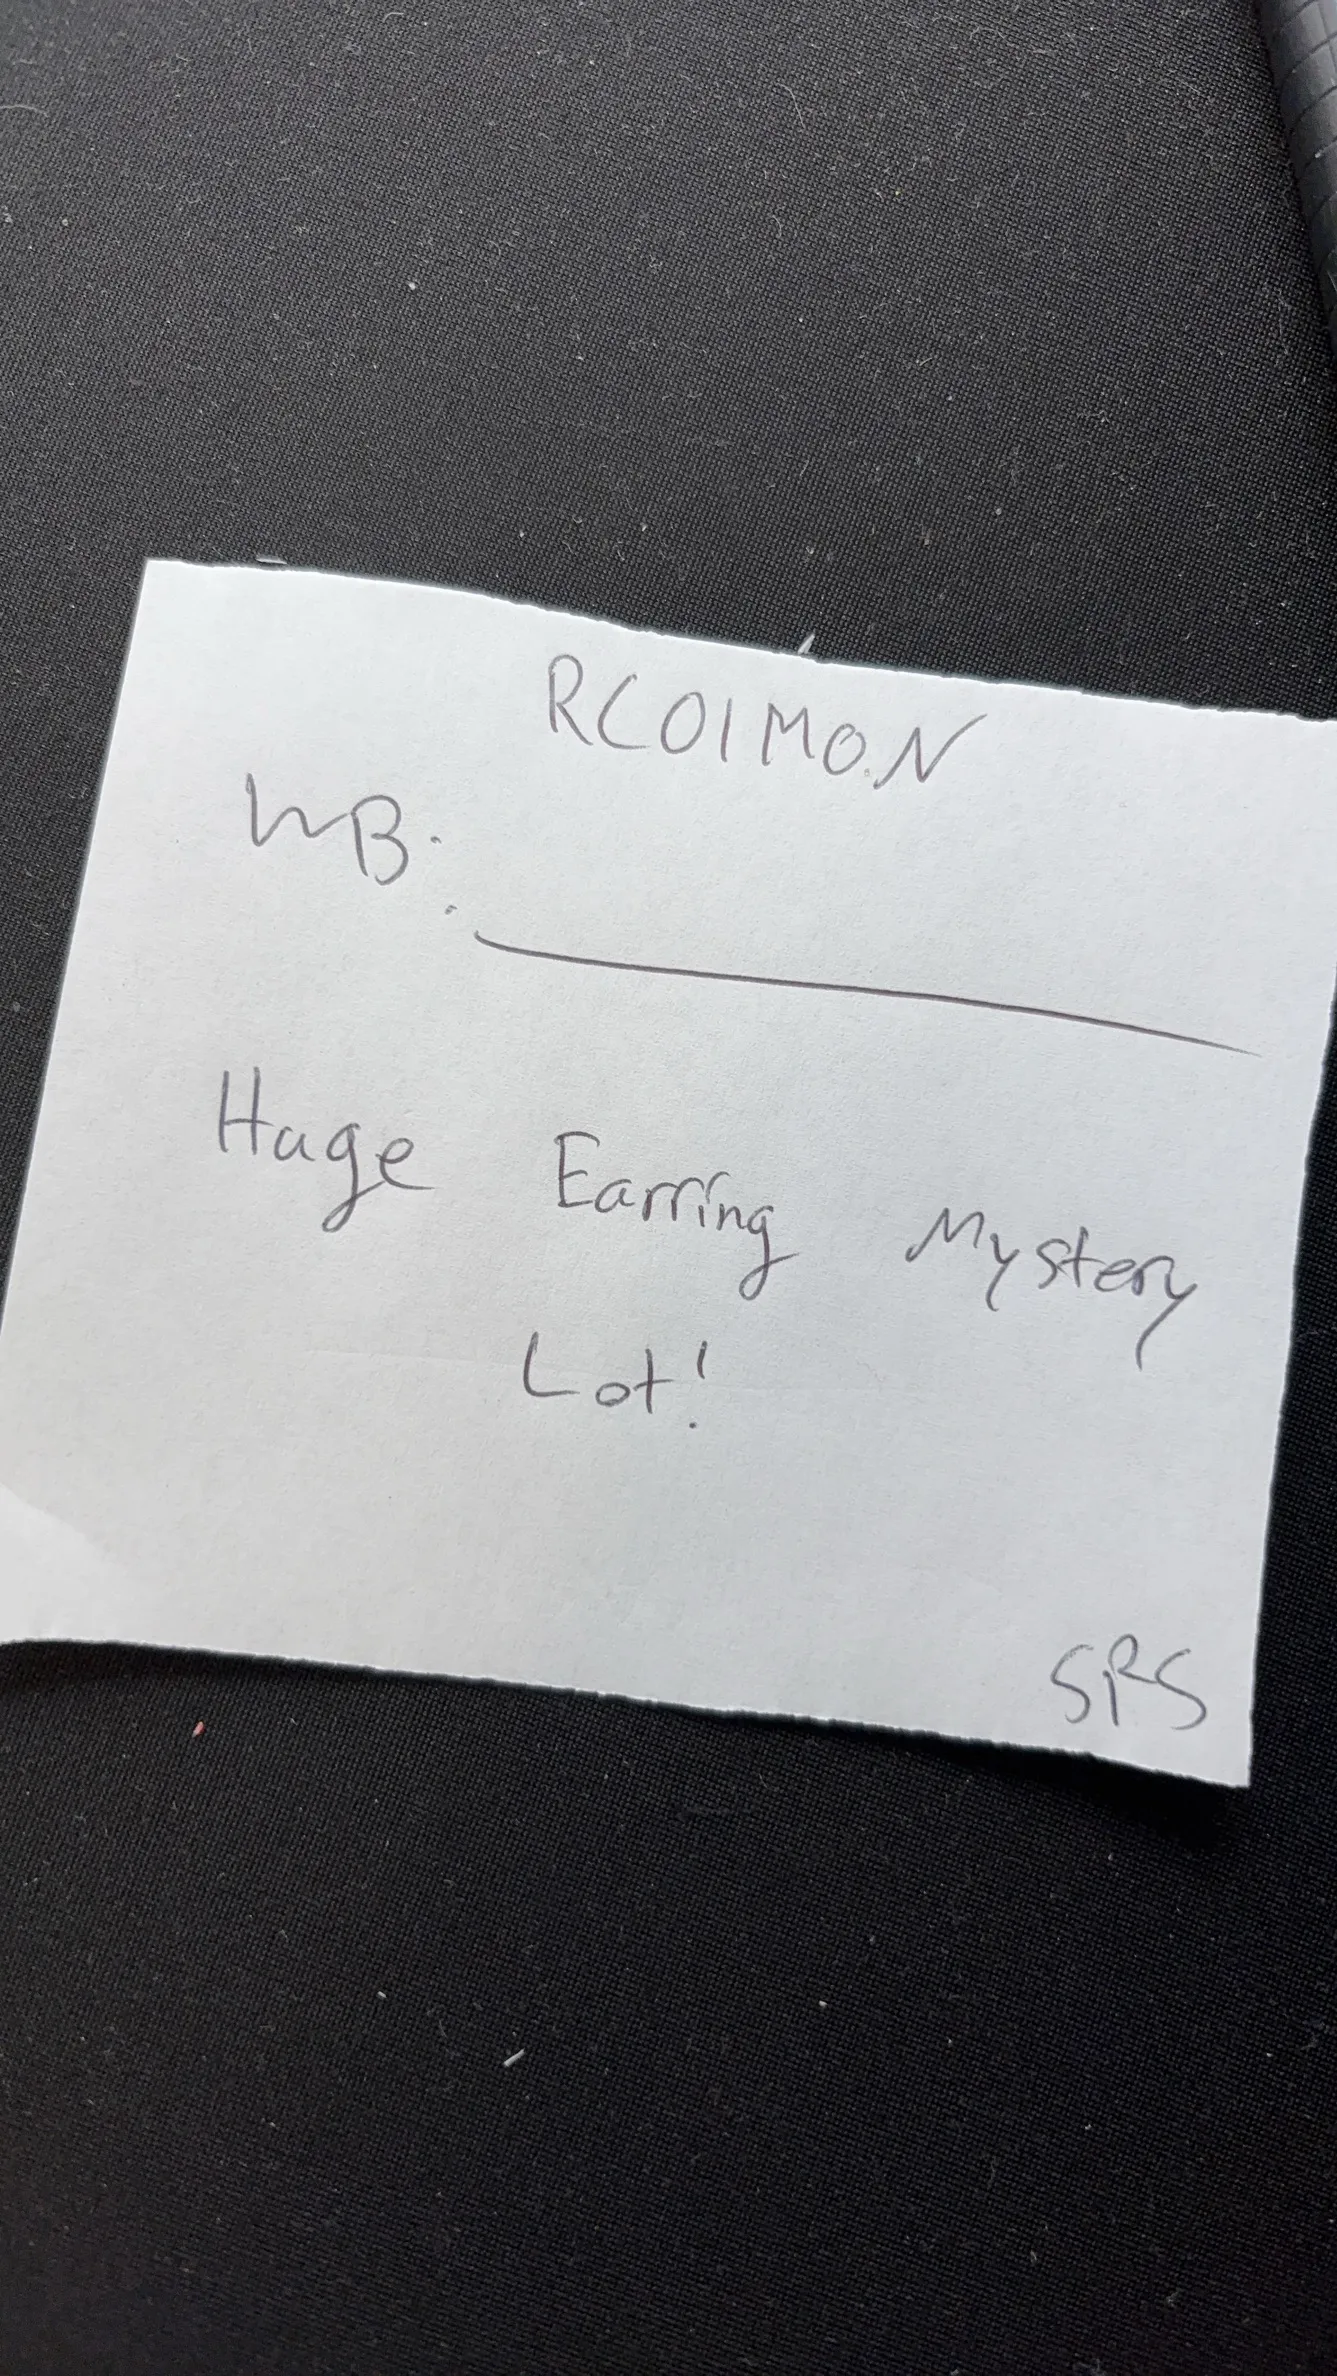 RC01MON
WB:
Huge Earring Mystery
Lot!
SRS